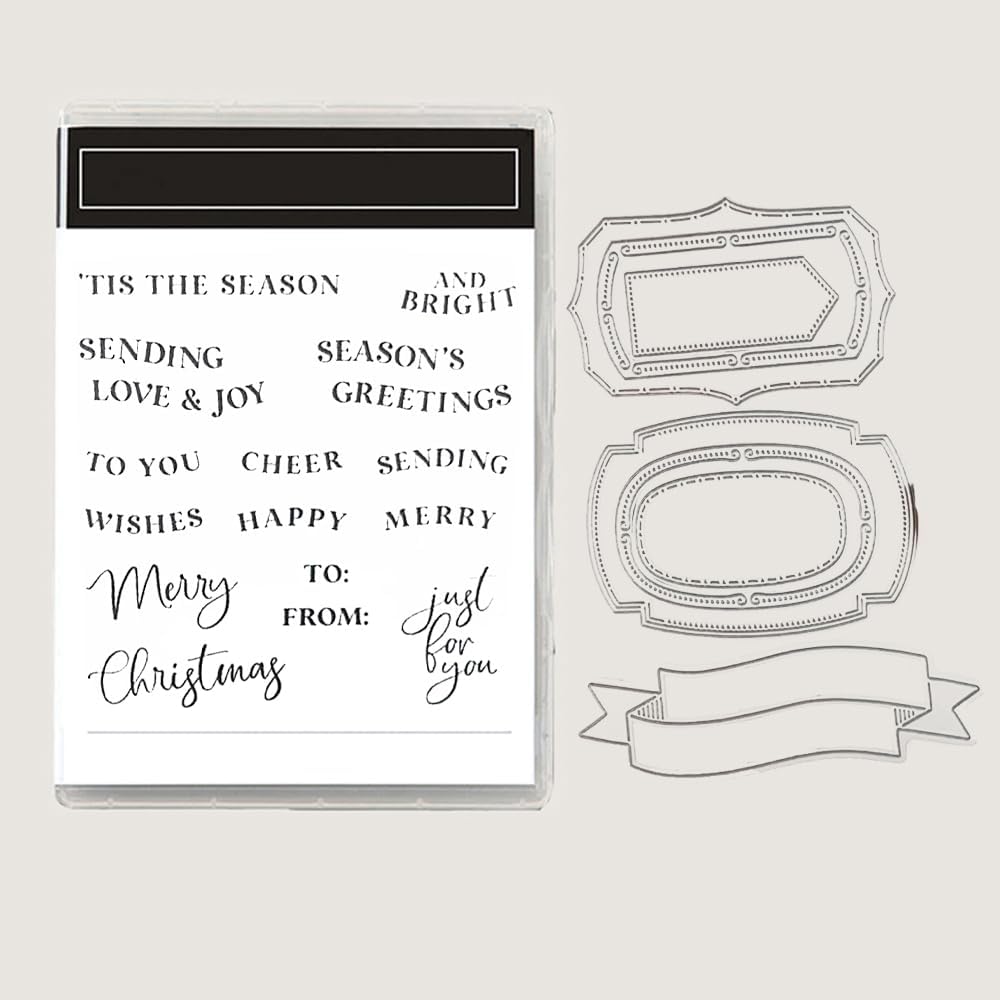 'TIS THE SEASON
AND
BRIGHT
SENDING
LOVE & JOY
SEASON'S
GREETINGS
TO YOU
CHEER
SENDING
WISHES
HAPPY
MERRY
Merry
Christmas
TO:
FROM:
just
for
you